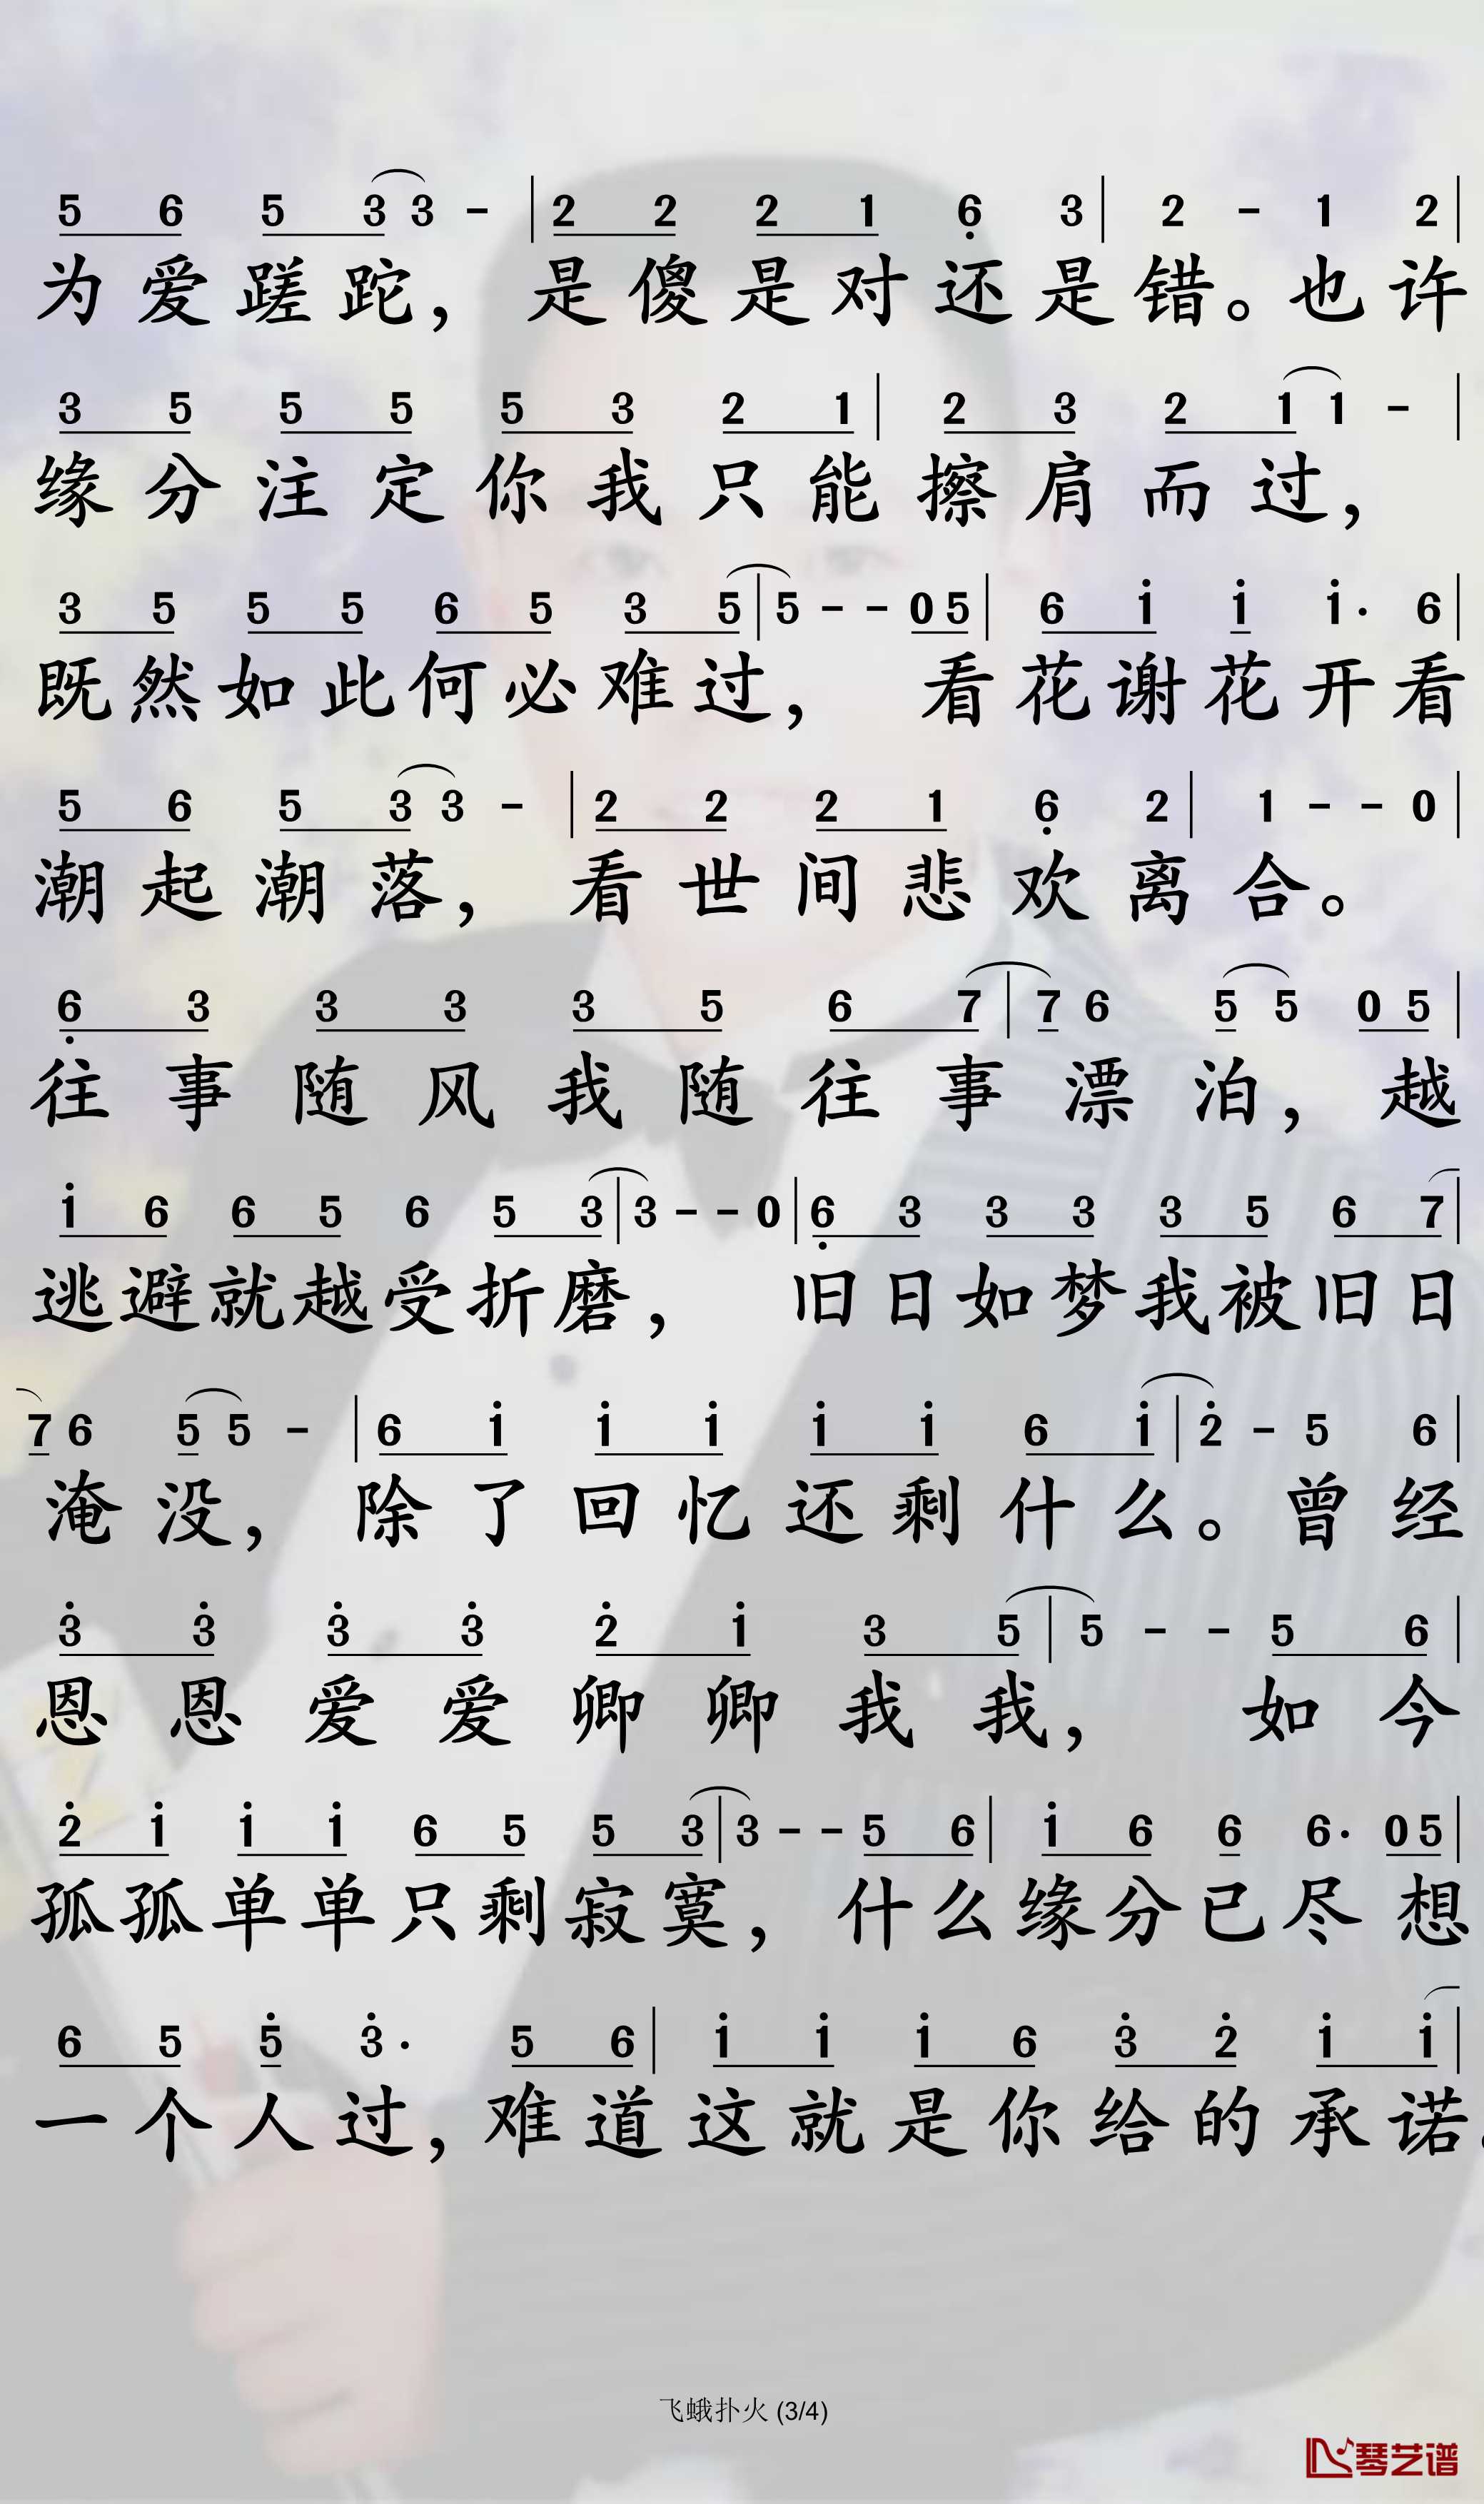 5 6 5 3 3 - | 2 2 2 1 6̣ 3 | 2 - 1 2 |
为爱蹉跎，是傻是对还是错。也许
3 5 5 5 5 3 2 1 | 2 3 2 1 1 - |
缘分注定你我只能擦肩而过，
3 5 5 5 6 5 3 5 | 5 - - 0 5 | 6 1̇ 1̇ 1̇· 6 |
既然如此何必难过，看花谢花开看
5 6 5 3 3 - | 2 2 2 1 6̣ 2 | 1 - - 0 |
潮起潮落，看世间悲欢离合。
6̣ 3 3 3 3 5 6 7 | 7 6 5 5 0 5 |
往事随风我随往事漂泊，越
1̇ 6 6 5 6 5 3 | 3 - - 0 | 6̣ 3 3 3 3 5 6 7 |
逃避就越受折磨，旧日如梦我被旧日
7 6 5 5 - | 6 1̇ 1̇ 1̇ 1̇ 1̇ 6 1̇ | 2̇ - 5 6 |
淹没，除了回忆还剩什么。曾经
3̇ 3̇ 3̇ 3̇ 2̇ 1̇ 3 5 | 5 - - 5 6 |
恩恩爱爱卿卿我我，如今
2̇ 1̇ 1̇ 1̇ 6 5 5 3 | 3 - - 5 6 | 1̇ 6 6 6· 0 5 |
孤孤单单只剩寂寞，什么缘分已尽想
6 5 5̇ 3̇· 5 6 | 1̇ 1̇ 1̇ 6 3̇ 2̇ 1̇ 1̇ |
一个人过，难道这就是你给的承诺。
飞蛾扑火 (3/4)
琴艺谱